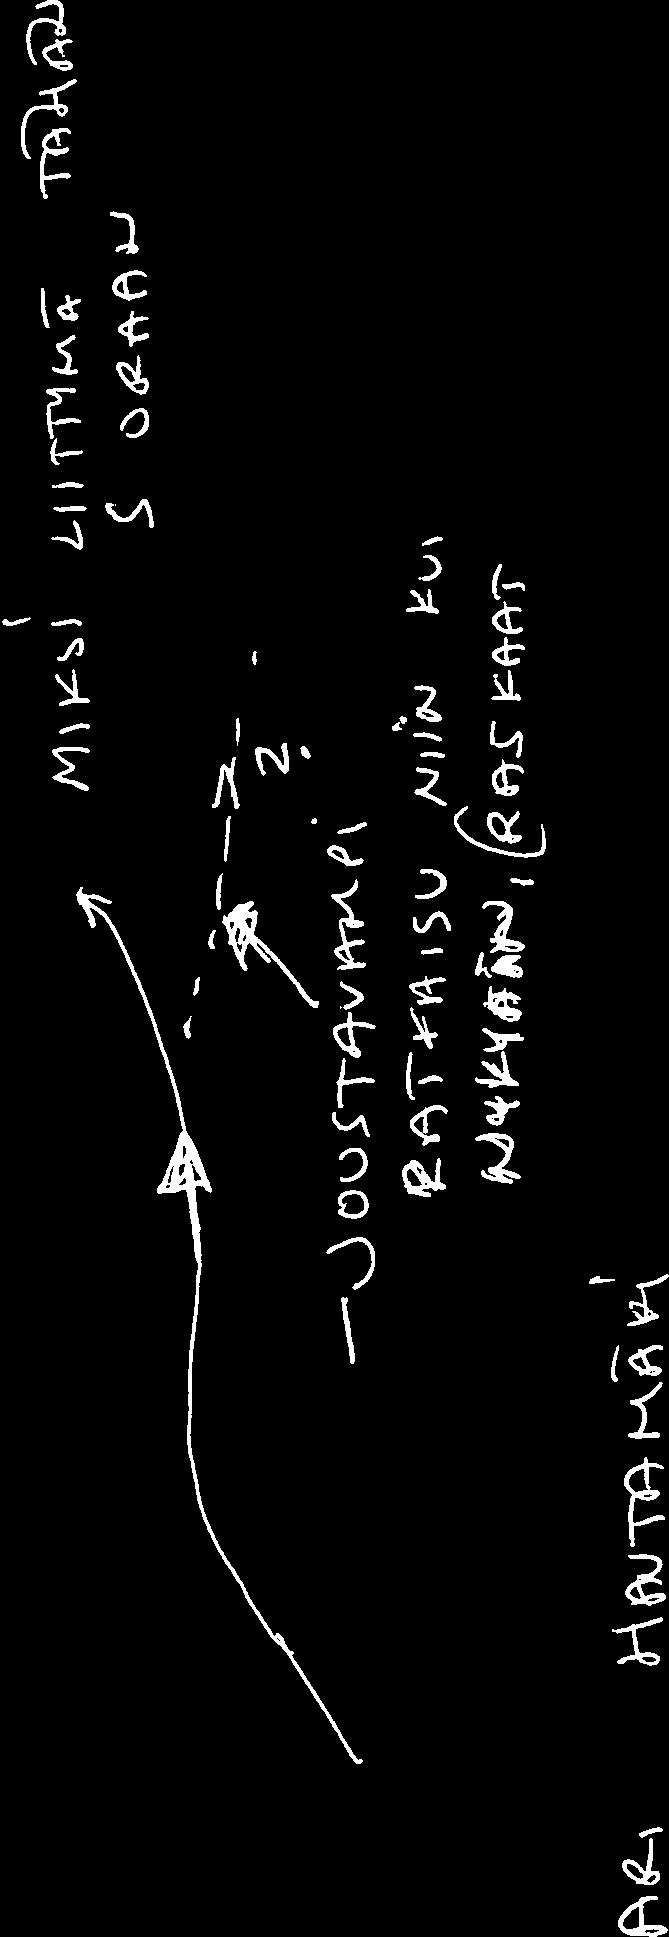 MIKSI LIITTYMÄ TÄHÄN
SORAAN
2.
– JOUSTAVAMPI
RATKAISU NIIN KUI
NYKYÄÄN, (RASKAAT
ARI HAUTAMÄKI